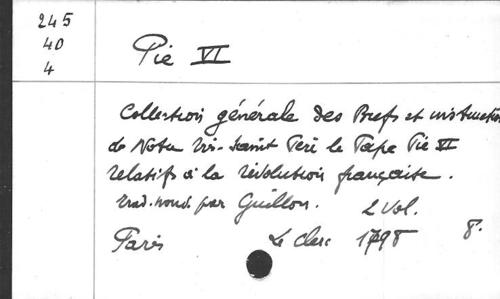 245
40
4
Pie VI
Collection générale des Brefs et instruction
de Notre très-saint Père le Pape Pie VI
relatifs à la révolution française.
trad. nouv. par Guillon. 2 Vol.
Paris Le Clerc 1798 8.